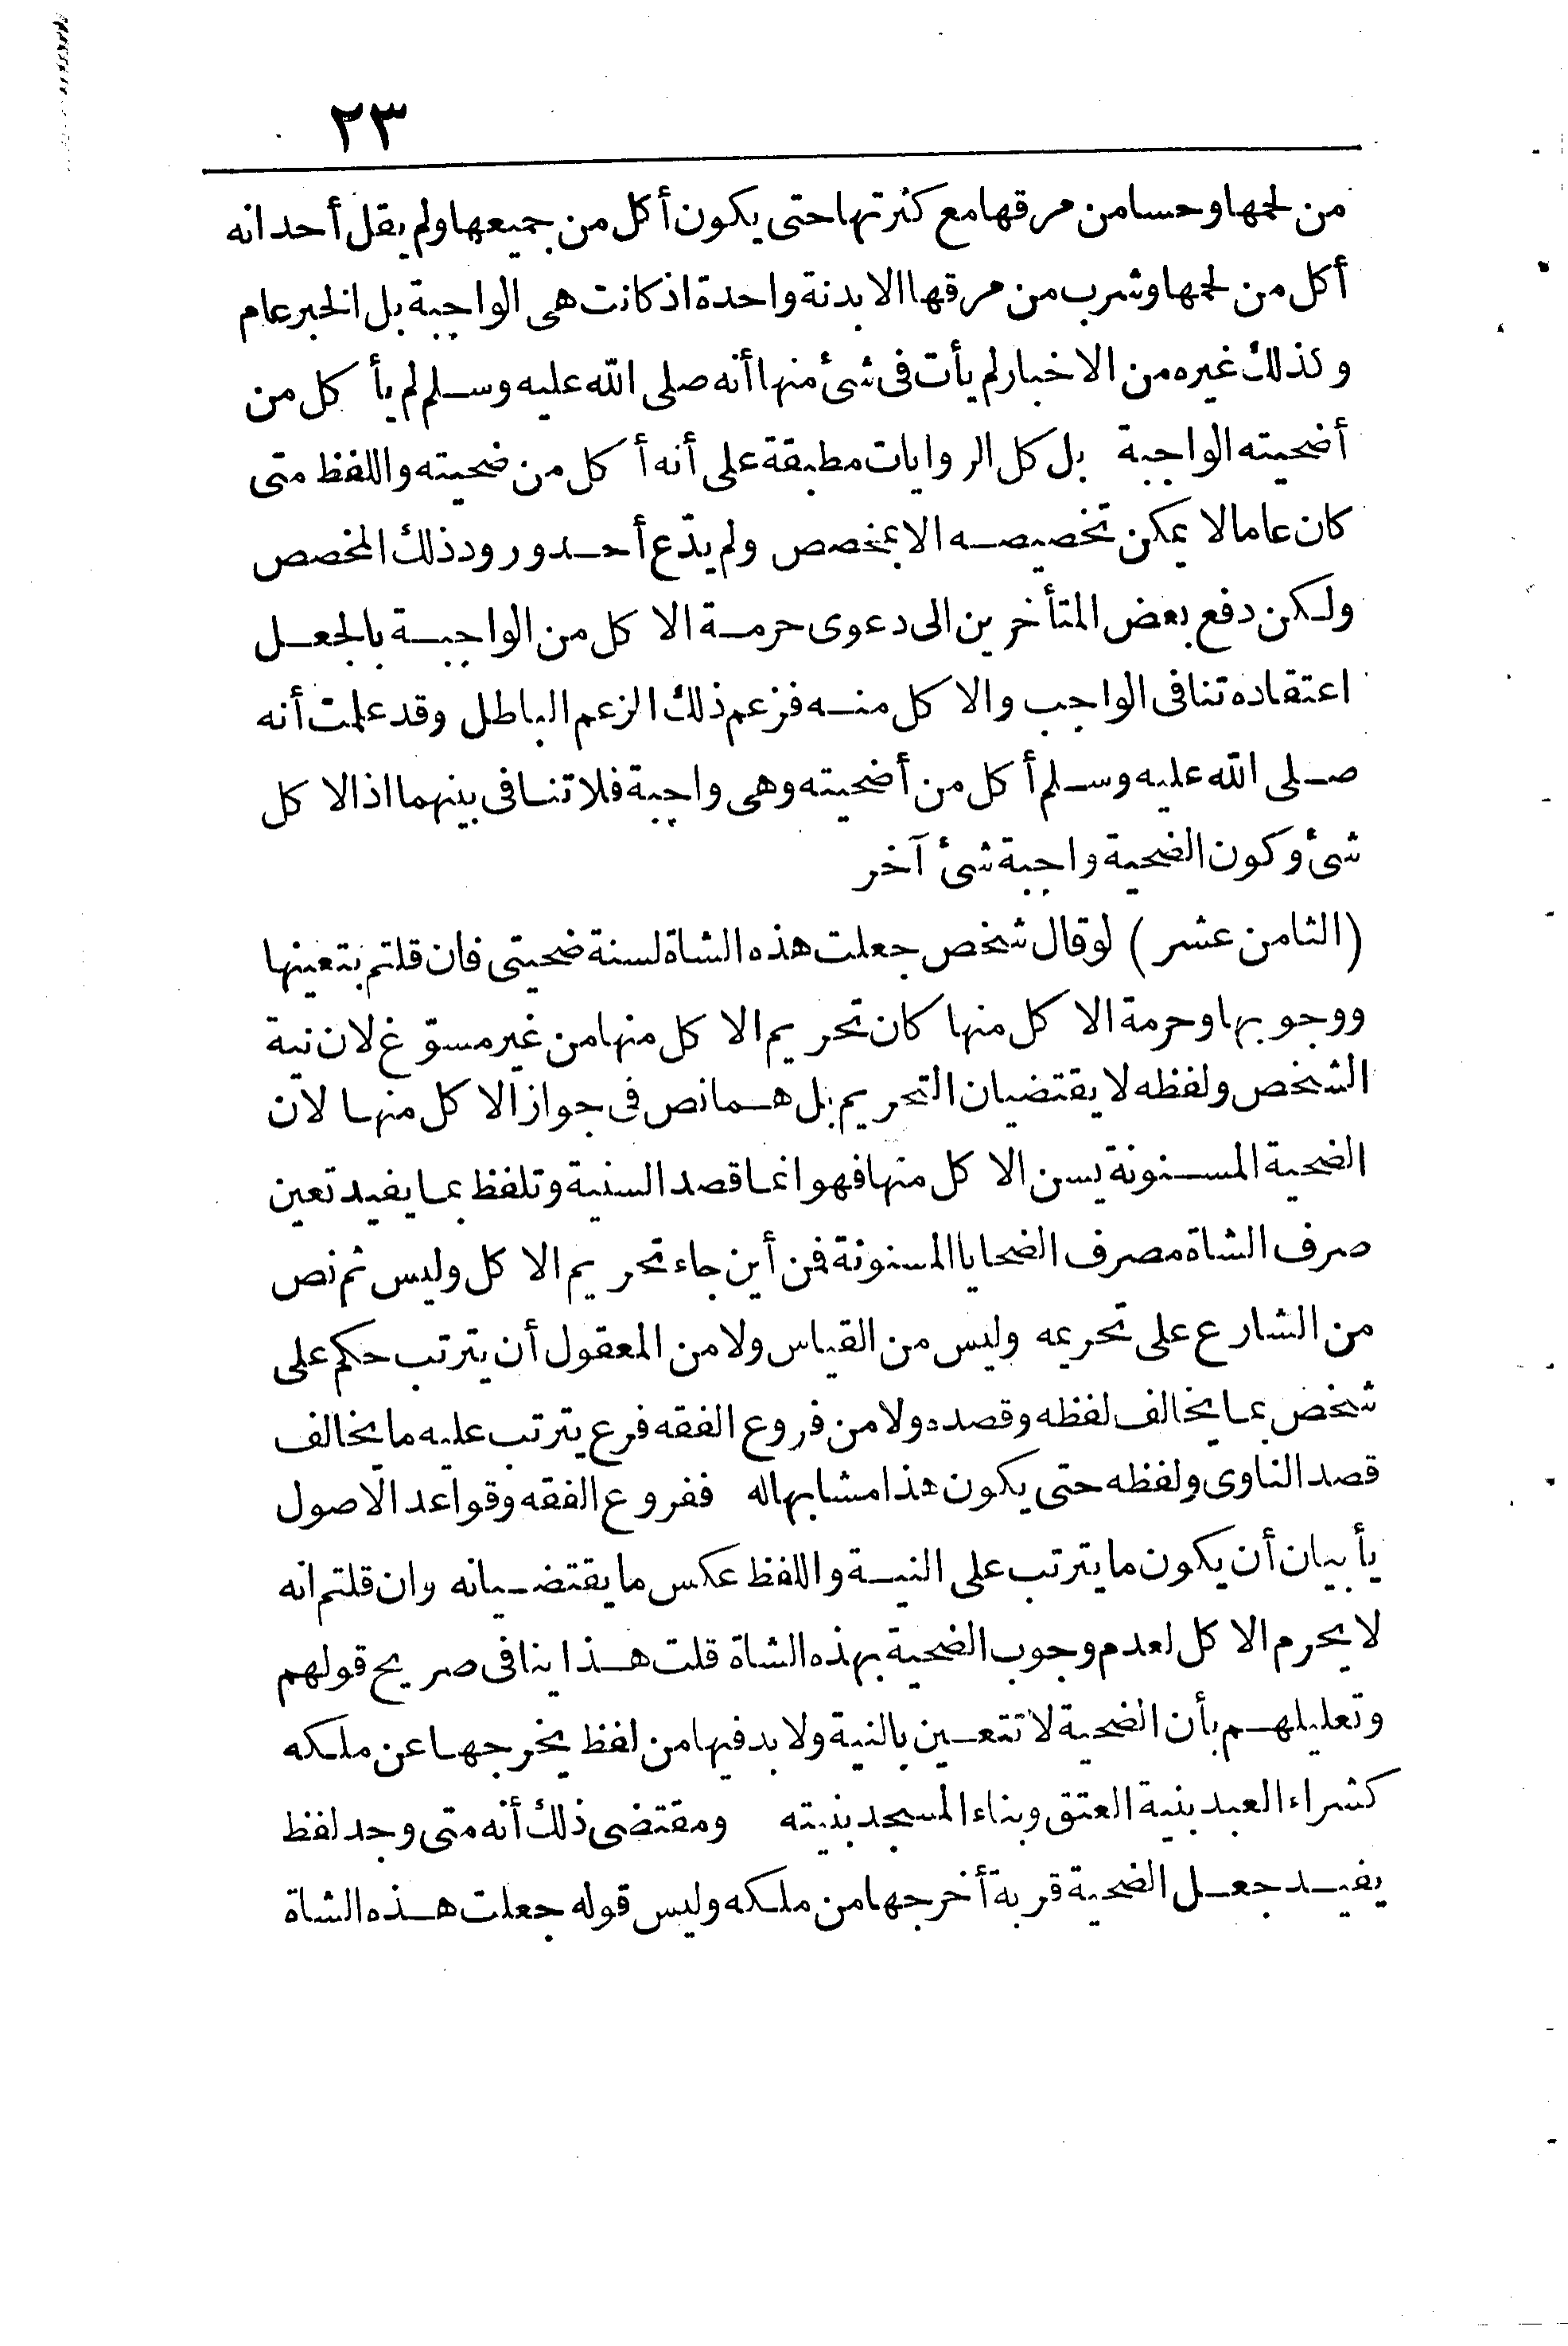 ٢٣
من لحمها وحسا من مرقها مع كثرتها حتى يكون أكل من جميعها ولم يقل أحد انه
أكل من لحمها وشرب من مرقها الا بدنة واحدة اذ كانت هى الواجبة بل الخبر عام
وكذلك غيره من الاخبار لم يأت فى شئ منها أنه صلى الله عليه وسلم لم يأكل من
أضحيته الواجبة بل كل الروايات مطبقة على أنه أكل من ضحيته واللفظ متى
كان عاما لا يمكن تخصيصه الا بمخصص ولم يدّع أحد ورود ذلك المخصص
ولكن دفع بعض المتأخرين الى دعوى حرمة الاكل من الواجبة بالجعل
اعتقاده تنافى الواجب والاكل منه فزعم ذلك الزعم الباطل وقد علمت أنه
صلى الله عليه وسلم أكل من أضحيته وهى واجبة فلا تنافى بينهما اذ الاكل
شئ وكون الضحية واجبة شئ آخر
(الثامن عشر) لو قال شخص جعلت هذه الشاة لسنة ضحيتى فان قلتم بتعينها
ووجوبها وحرمة الاكل منها كان تحريم الاكل منها من غير مسوّغ لان نية
الشخص ولفظه لا يقتضيان التحريم بل هما نص فى جواز الاكل منها لان
الضحية المسنونة يسن الاكل منها فهو انما قصد السنية وتلفظ بما يفيد تعين
صرف الشاة مصرف الضحايا المسنونة فمن أين جاء تحريم الاكل وليس ثم نص
من الشارع على تحريمه وليس من القياس ولا من المعقول أن يترتب حكم على
شخص بما يخالف لفظه وقصده ولا من فروع الفقه فرع يترتب عليه ما يخالف
قصد الناوى ولفظه حتى يكون هذا مشابها له ففروع الفقه وقواعد الاصول
يأبيان أن يكون ما يترتب على النية واللفظ عكس ما يقتضيانه وان قلتم انه
لا يحرم الاكل لعدم وجوب الضحية بهذه الشاة قلت هذا ينافى صريح قولهم
وتعليلهم بأن الضحية لا تتعين بالنية ولا بد فيها من لفظ يخرجها عن ملكه
كشراء العبد بنية العتق وبناء المسجد بنيته ومقتضى ذلك أنه متى وجد لفظ
يفيد جعل الضحية قربة أخرجها من ملكه وليس قوله جعلت هذه الشاة